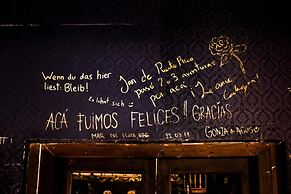 Wenn du das hier
liest: Bleib!
Es lohnt sich
Jan de Puerto Rico
pasó 2 o 3 aventuras
por acá
¡Lo amé
ACÁ FUIMOS FELICES!! GRACIAS
MAR DEL PLATA ARG
GONZA &